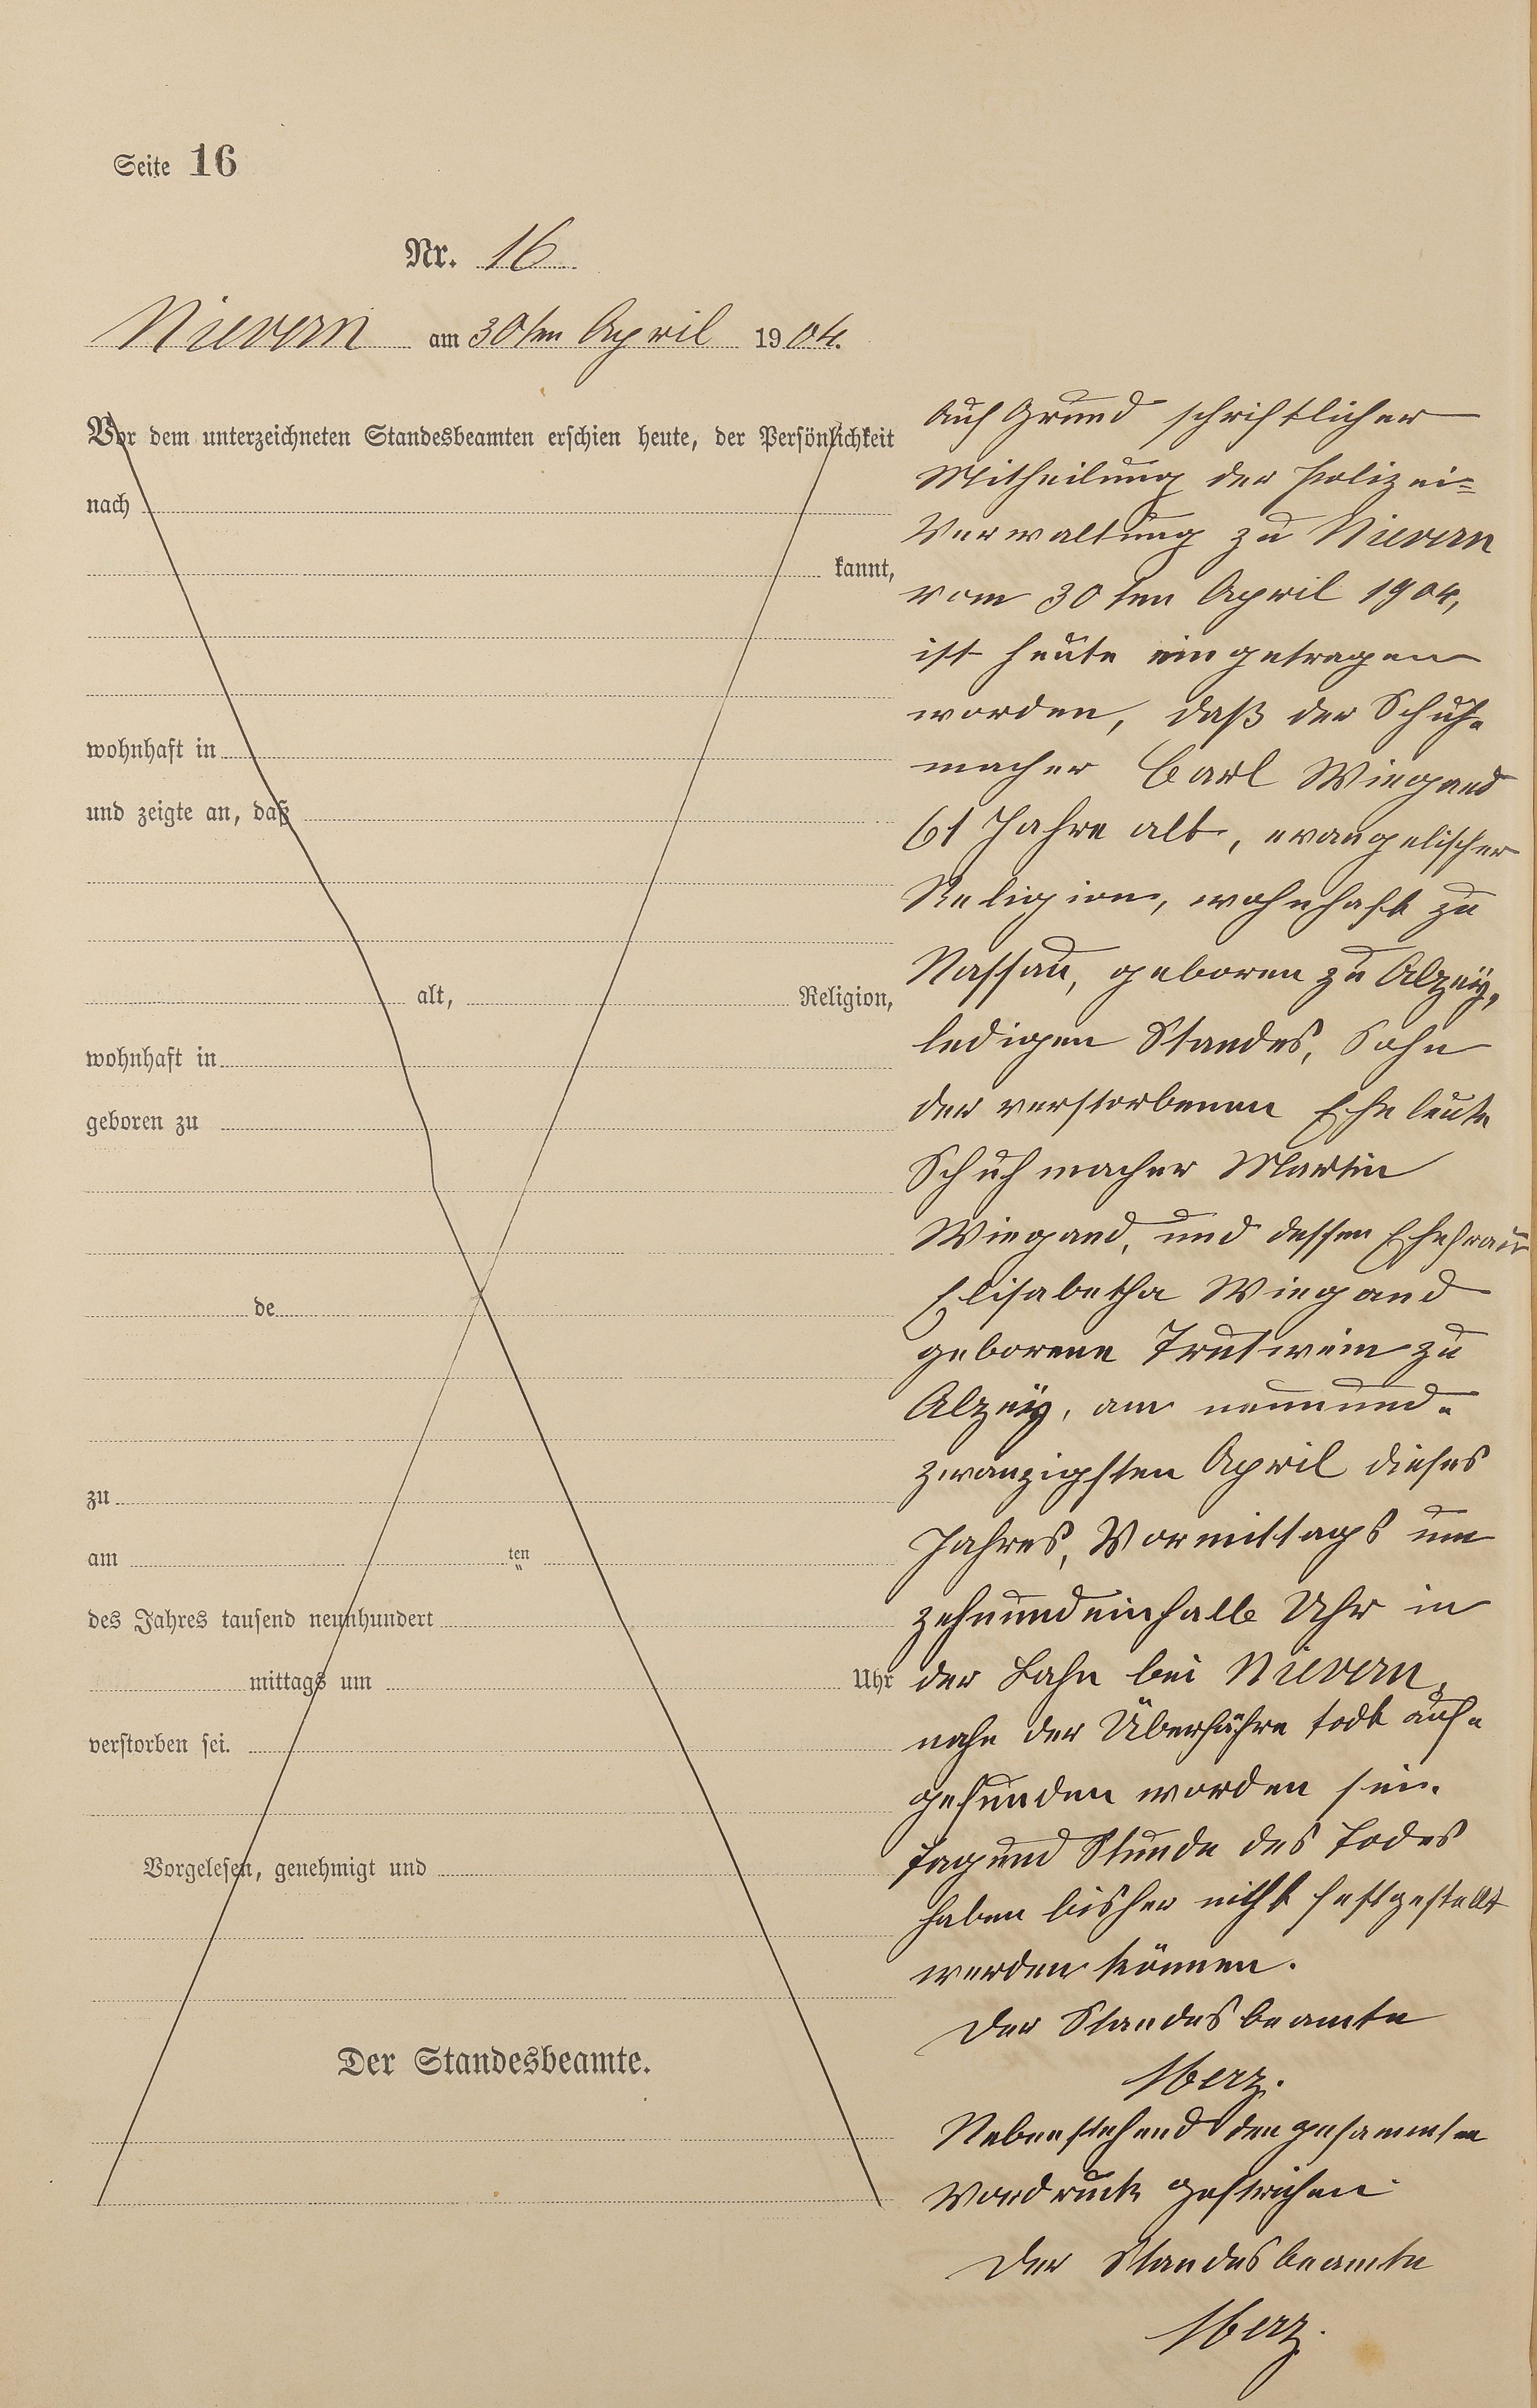 Seite 16
Nr. 16
Nievern am 30ten April 1904.
Vor dem unterzeichneten Standesbeamten erschien heute, der Persönlichkeit
nach
kannt,
wohnhaft in
und zeigte an, daß
alt, Religion,
wohnhaft in
geboren zu
de
zu
am ten
des Jahres tausend neunhundert
mittags um Uhr
verstorben sei.
Vorgelesen, genehmigt und
Der Standesbeamte.
Auf Grund schriftlicher
Mitheilung der Polizei=
Verwaltung zu Nievern
vom 30ten April 1904,
ist heute eingetragen
worden, daß der Schuh-
macher Carl Wiegand
61 Jahre alt, evangelischer
Religion, wohnhaft zu
Nassau, geboren zu Alzey,
ledigen Standes, Sohn
der verstorbenen Eheleute
Schuhmacher Martin
Wiegand, und dessen Ehefrau
Elisabetha Wiegand
geborene Trutwein zu
Alzey, am neunund-
zwanzigsten April dieses
Jahres, Vormittags um
zehnundeinhalb Uhr in
der Lahn bei Nievern,
nahe der Überfähre todt auf-
gefunden worden sei.
Tag und Stunde des Todes
haben bisher nicht festgestellt
werden können.
Der Standesbeamte
Nebenstehend den gesammten
Vordruck gestrichen
Der Standesbeamte